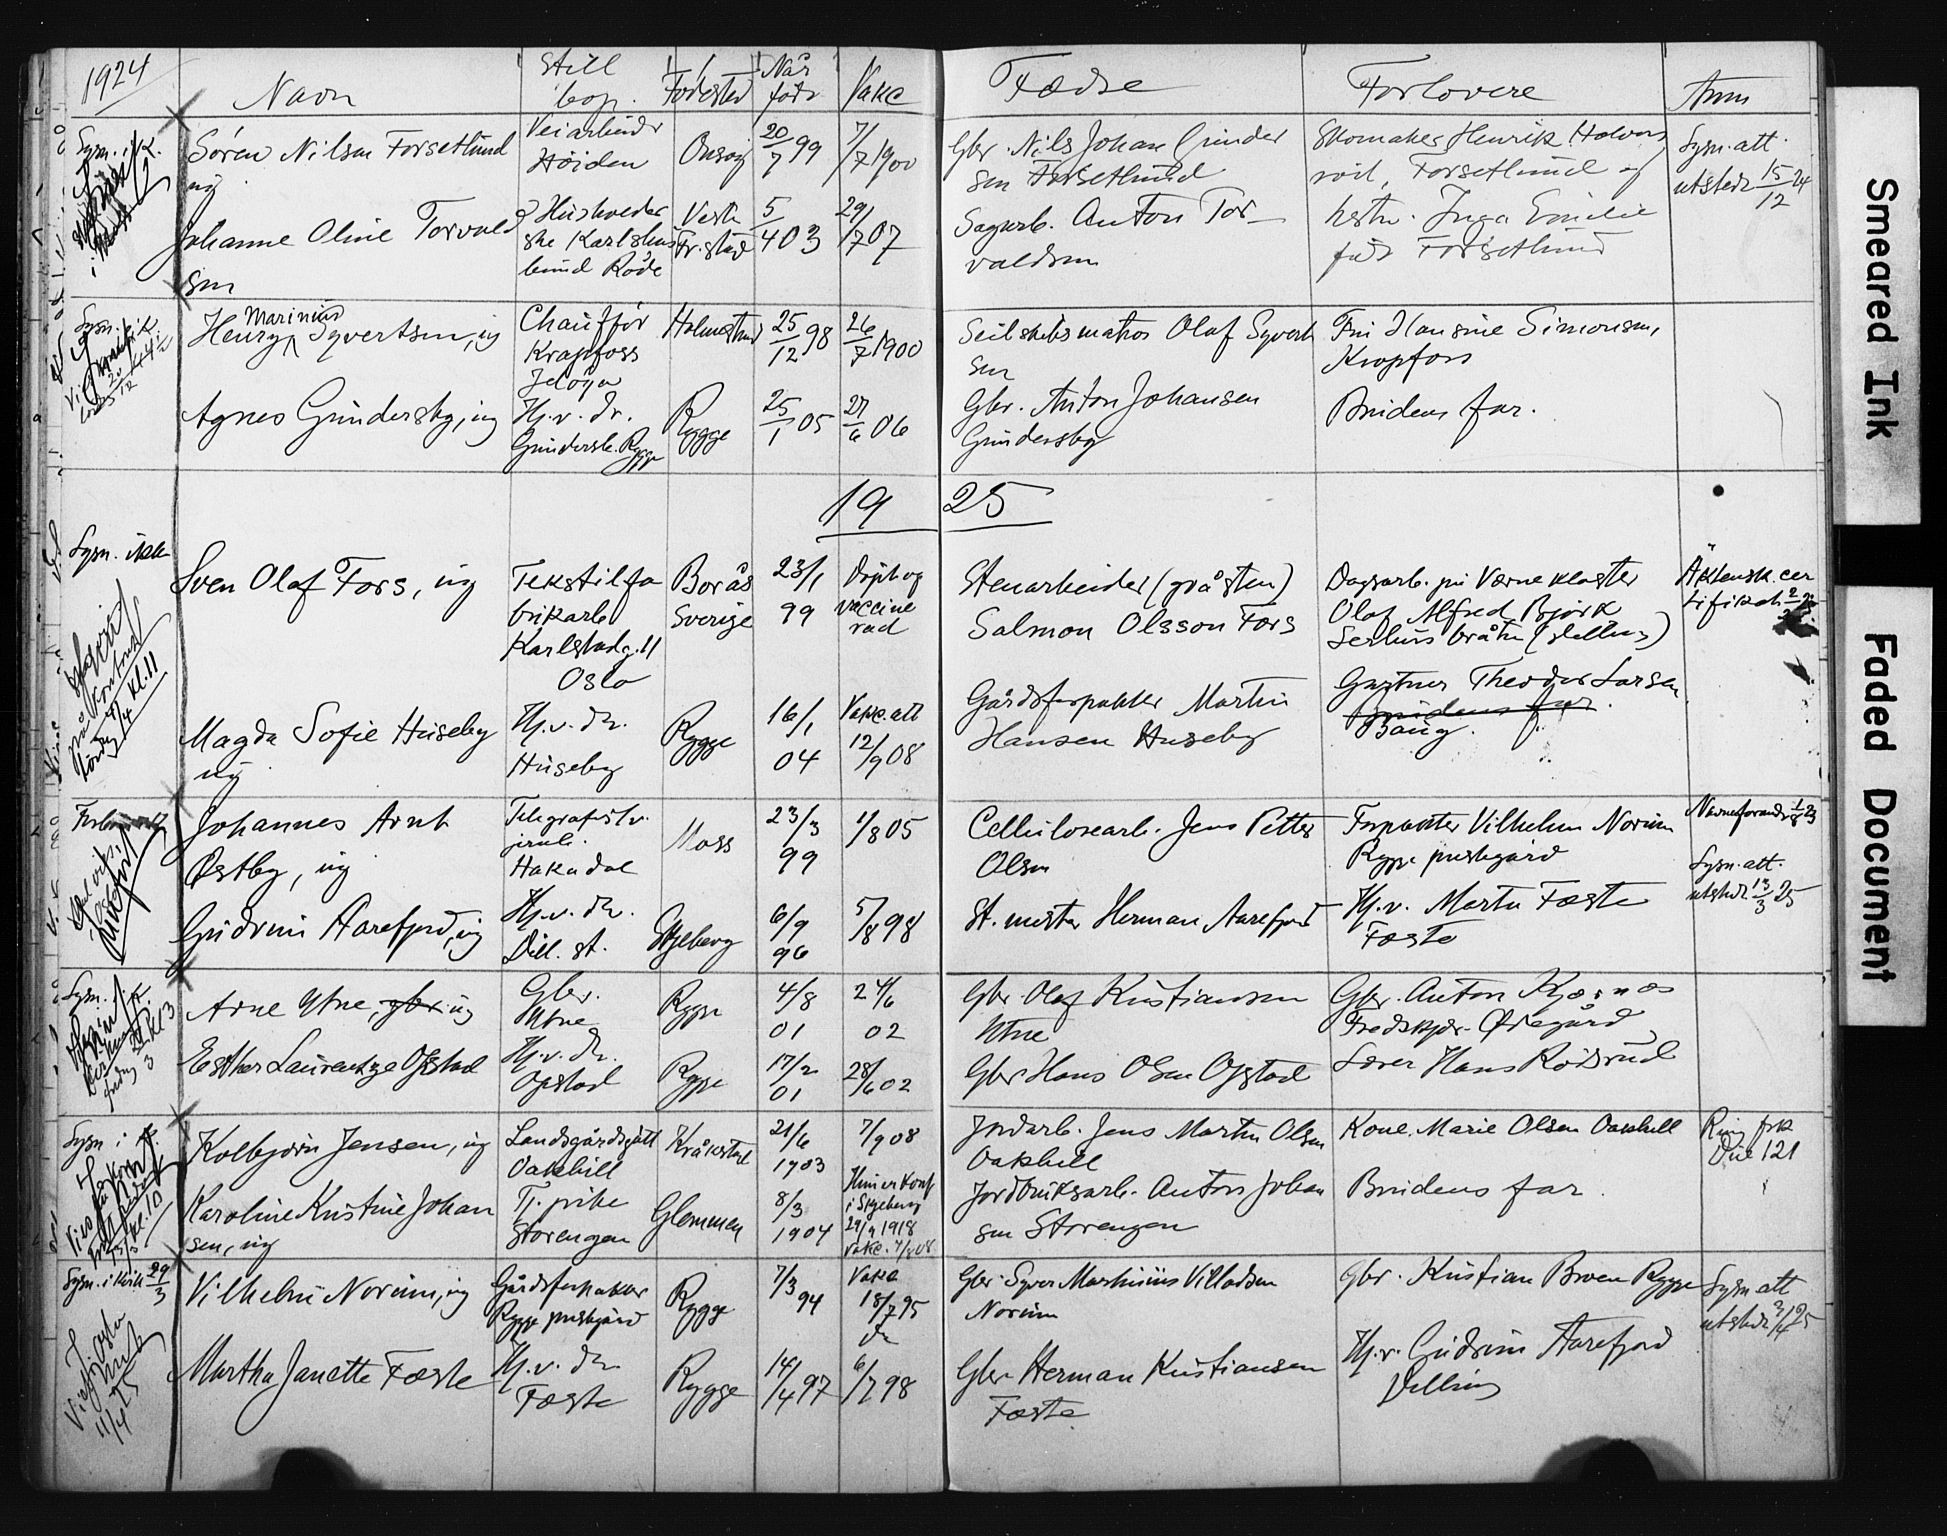 1924
Navn
Still
bop.
Fødested
Når
født
Vakc
Fædre
Forlovere
Anm
Søren Nilsen Forsetlund
ug
Veiarbeider
Høiden
Onsøy
20/7 99
7/7 1900
Gbr. Nils Johan Gunder
sen Forsetlund
Skomaker Henrik Halvors
rød, Forsetlund og
hustru Inga Emilie
født Forsetlund
Lysn. att.
utstedt 15/12 24
Johanne Oline Torvald
sen
Husholder
ske Karlshus
lund Råde
Vestre
Fr.stad
5/4 03
29/7 07
Sagarb. Anton Tor-
valdsen
Henry Marinius Syvertsen, ug
Chauffør
Krapfoss
Jeløya
Holmestrand
25/12 98
26/7 1900
Seilskibsmatros Olaf Syvert
sen
Fru Hansine Simonsen,
Kropfoss
Agnes Gundersby, ug
Hj.v. dr.
Gundersb. Rygge
Rygge
25/1 05
27/6 06
Gbr. Anton Johansen
Gundersby
Brudens far.
19 25
Lysn. ikke
Sven Olaf Fors, ug
Tekstilfa
brikarb
Karlstadg. 11
Oslo
Borås
Sverige
23/1
99
Døpt og
vaccine
rad
Stenarbeider (gråsten)
Salmon Olsson Fors
Dagsarb. på Værne kloster
Olaf Alfred Bjørk
Äktensk. cer
tifikat
på kontoret
lørdag 4/4 kl. 11
Magda Sofie Huseby
ug
Hj.v. dr.
Huseby
Rygge
16/1
04
Vakc. att
12/9 08
Gårdsforpakter Martin
Hansen Huseby
Gartner Theodor Larsen
Brudens far.
Baug.
Johannes Arnt
Østby, ug
Telegrafistv.
Hakadal
Moss
23/3
99
1/8 05
Cellulosearb. Jens Petter
Olsen
Forpakter Vilhelm Norum
Rygge prestegård
Navneforandr. 1/8 23
Lysn. att.
utstedt 13/3 25
Gudrun Aarefjord, ug
Hj.v. dr.
Dill. st.
Skjeberg
6/9
96
5/8 98
St. mester Herman Aarefjord
Hj.v. Marta Fæste
Fæste
Arne Utne, gbr. ug
Gbr.
Utne
Rygge
4/8
01
24/6
02
Gbr. Olaf Kristiansen
Utne
Gbr. Anton Kjærnes
Fredskjær-Øregård
Esther Laurentze Opstad
Hj.v. dr.
Opstad
Rygge
17/2
01
28/6 02
Gbr. Hans Olsen Opstad
Lærer Hans Rødsrud
Kolbjørn Jensen, ug
Landsgårdsgutt
Oakhill
Kråkstad
21/6
1903
7/9 08
Jordarb. Jens Martin Olsen
Oakhill
Kone Marie Olsen Oakhill
Karoline Kristine Johan
sen, ug
Tj. pike
Storengen
Glemmen
8/3
1904
Hun er konf
i Skjeberg
29/9 1918
Vakc. 7/8 08
Jordbruksarb. Anton Johan
sen Storengen
Brudens far.
Lysn. i kirk 29/3
Vilhelm Norum, ug
Gårdsforpakter
Rygge prestegård
Rygge
7/3 94
Vakc
18/7 95
Gbr. Syver Marthinius Villadsen
Norum
Gbr. Kristian Broen Rygge
Lysn. att
utstedt 3/4 25
Martha Janette Fæste
Hj.v. dr.
Fæste
Rygge
14/4 97
6/7 98
Gbr. Herman Kristiansen
Fæste
Hj.v. Gudrun Aarefjord
Dilling
11/4 25
Smeared Ink
Faded Document